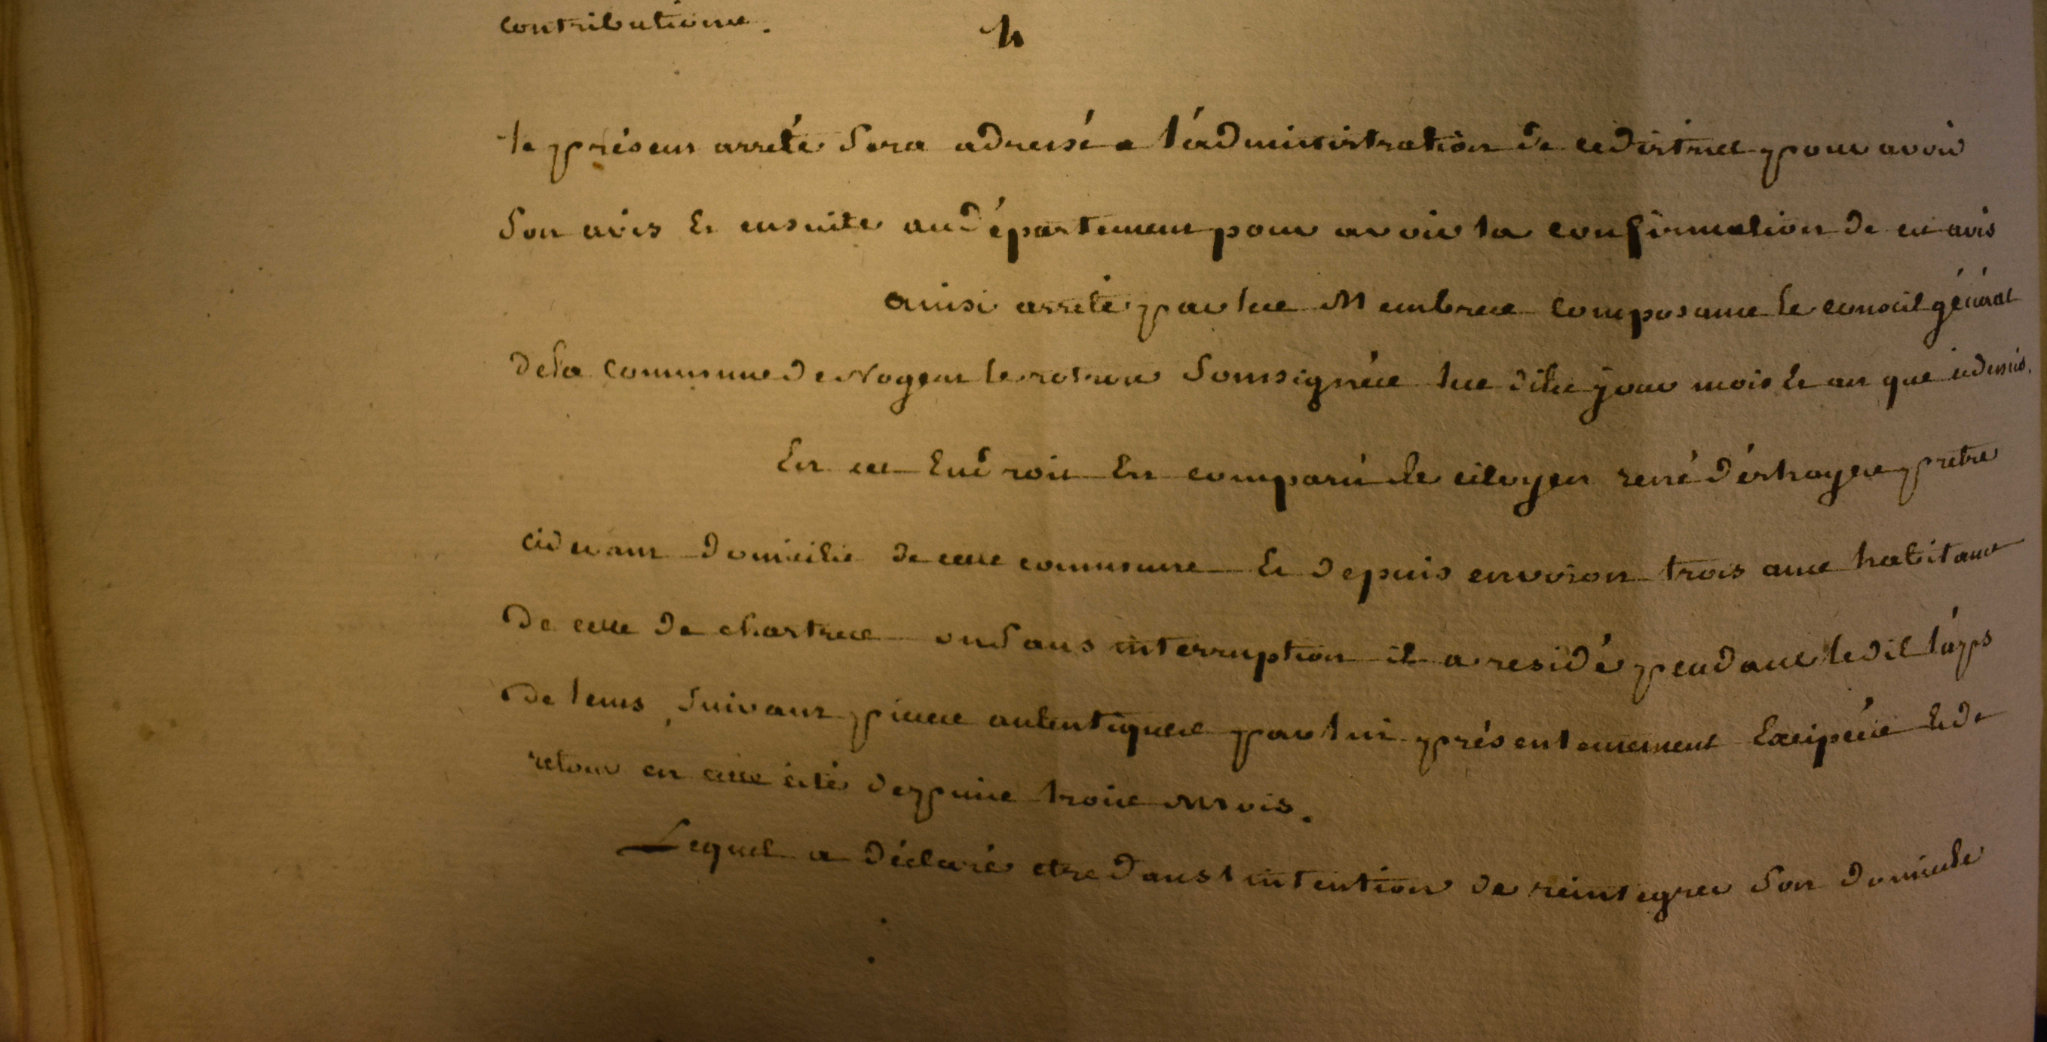 contributions.
4
le présent arrêté sera adressé a l'administration de ce district pour avoir
son avis et ensuite au département pour avoir la confirmation de cet avis
ainsi arrêté par les Membres composants le conseil général
de la commune de Nogent le rotrou soussignés les dits jour mois et an que cidessus.
En cet Endroit En comparu le citoyen rené déshayes prêtre
cidevant domicilié de cette commune et depuis environ trois ans habitant
de celle de chartres ou sans interruption il a residé pendant ledit laps
de tems, suivant pieces autentiques par lui présentement Excipées et de
retour en cette cité depuis trois Mois.
Lequel a déclaré etre dans l intention de reintegrer son domicile